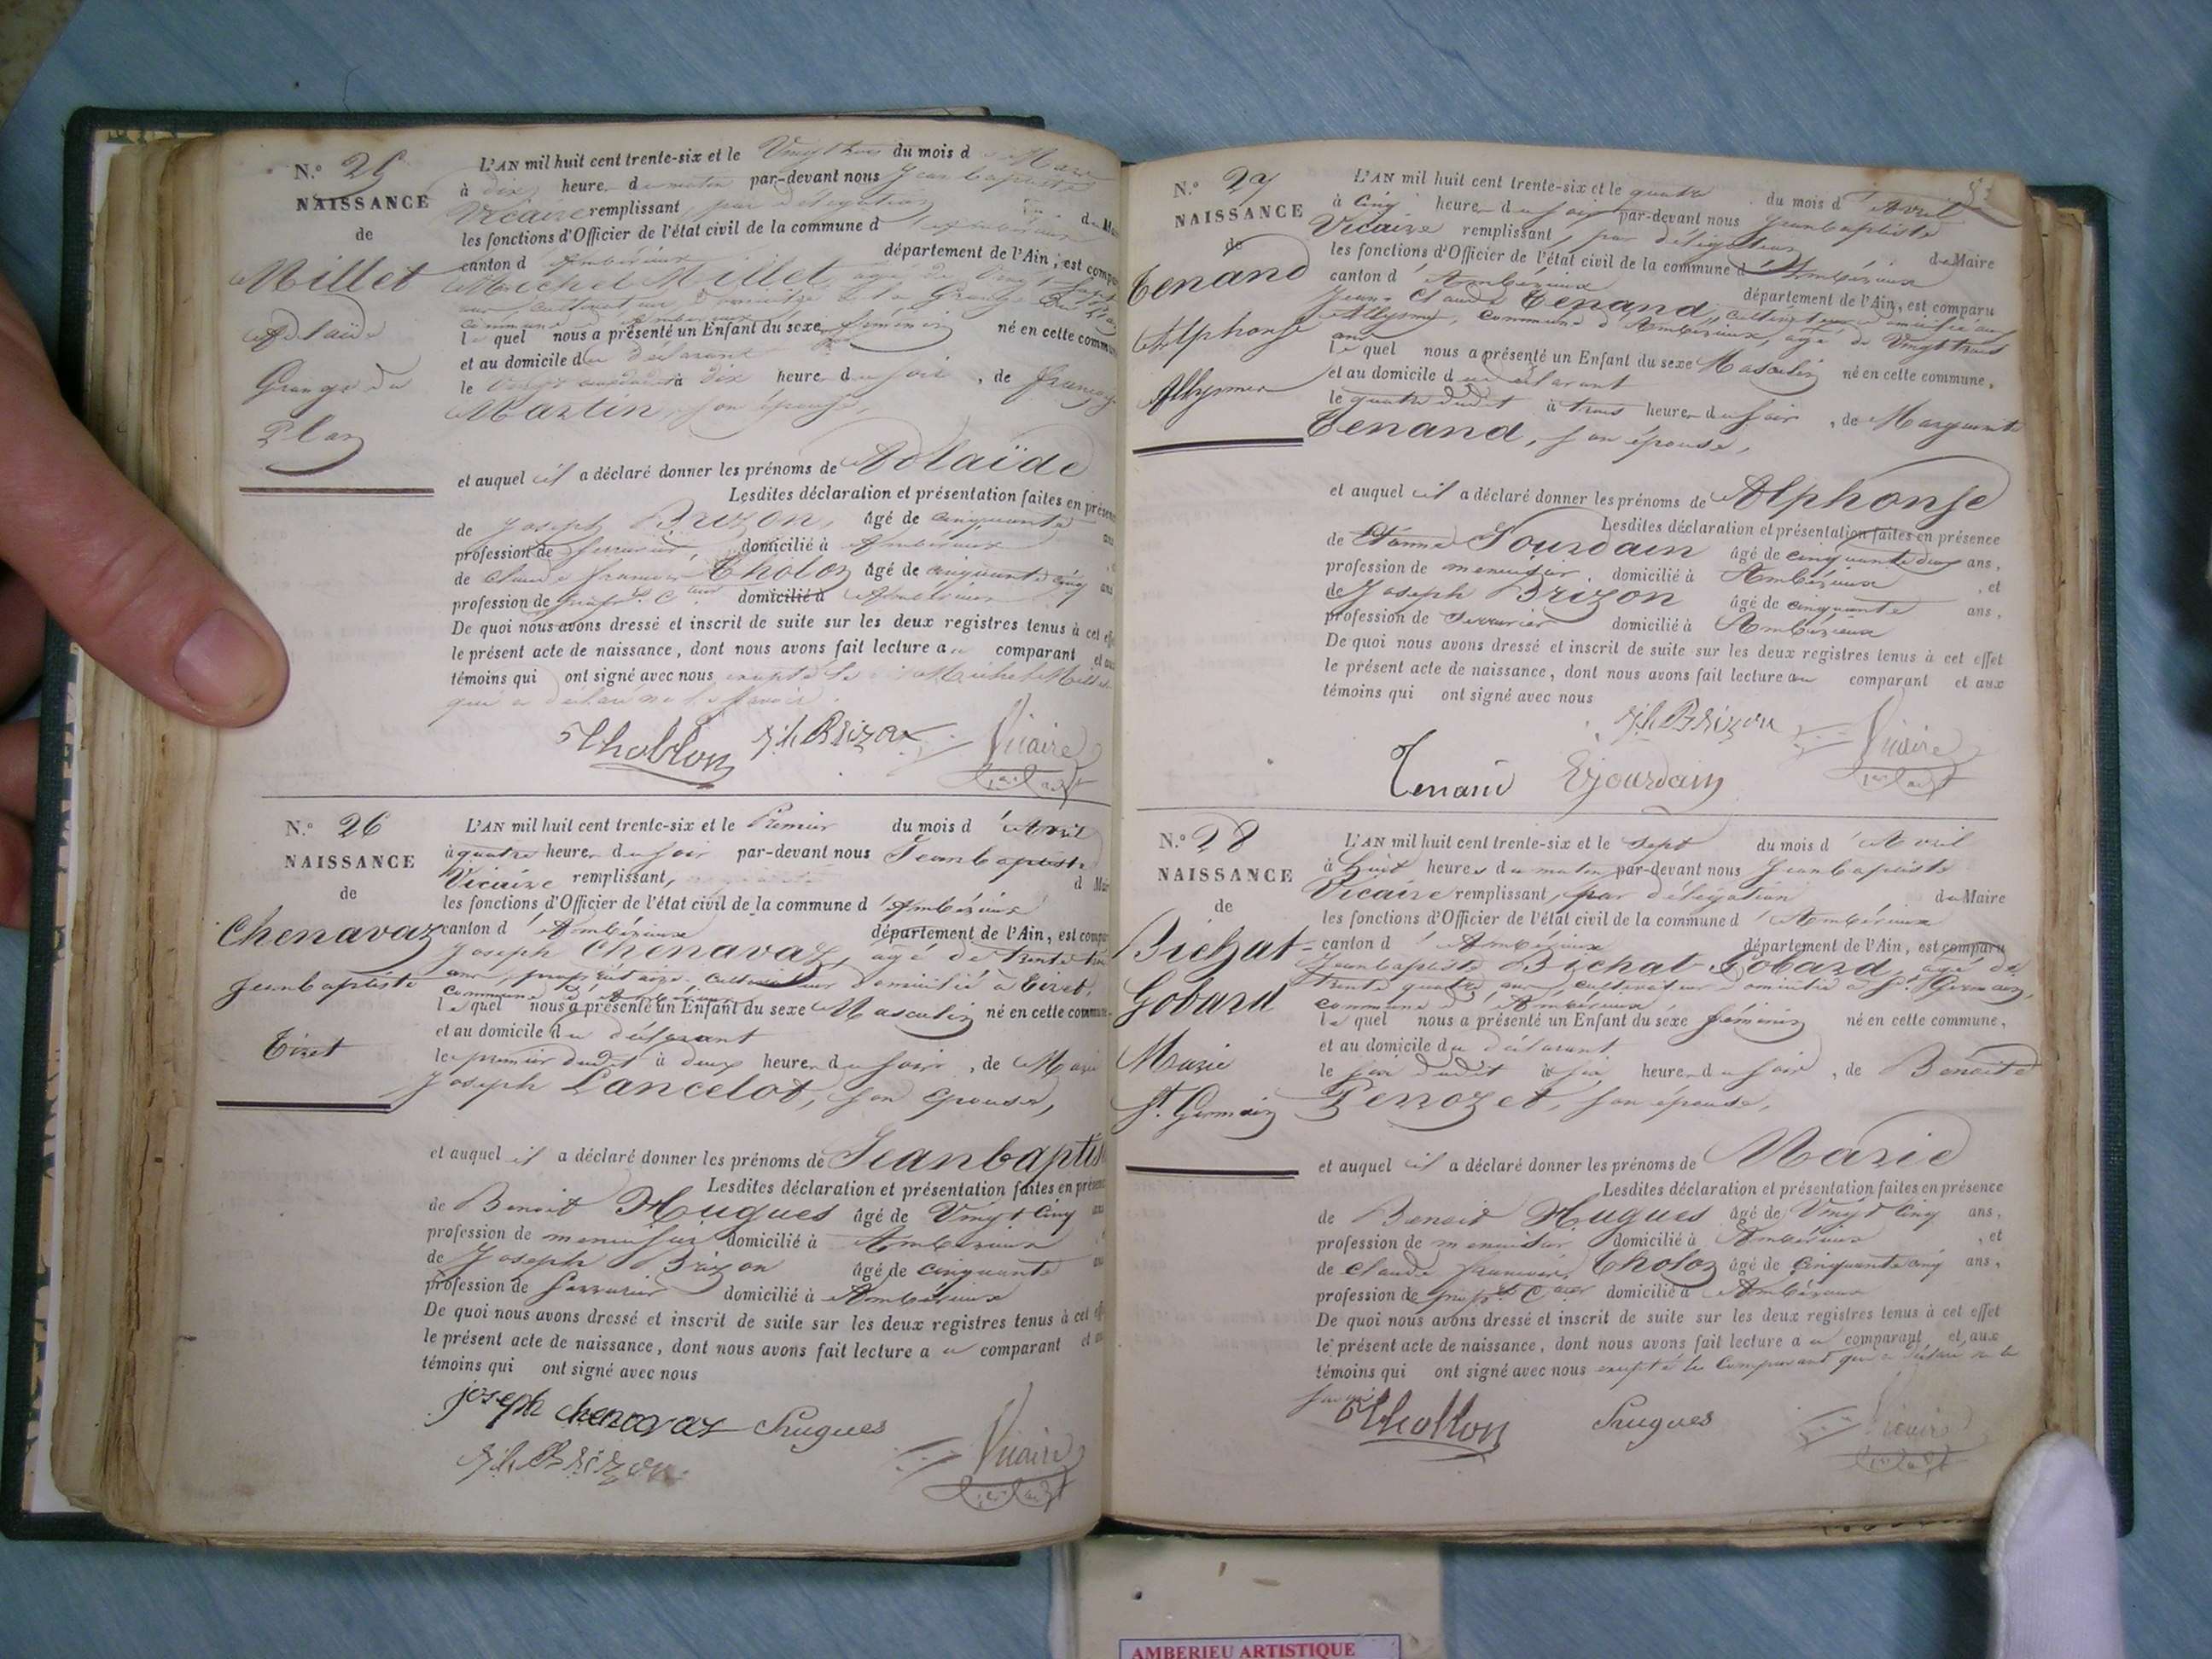 N.° 25
NAISSANCE
de
Millet
Adlaïde
Grange du
Plan
L'AN mil huit cent trente-six et le Vingt trois du mois d Mars
à dix heure du matin par-devant nous Jean baptiste
Vicaire remplissant, par délégation du Mai
les fonctions d'Officier de l'état civil de la commune d'Ambérieux
canton d'Ambérieux département de l'Ain, est compa
Michel Millet, âgé de Vingt sept
ans, cultivateur, domicilié à la Grange du Plan
commune d'Ambérieux
lequel nous a présenté un Enfant du sexe féminin né en cette commun
et au domicile du déclarant
le à dix heure du soir, de françoise
Martin, son épouse,
et auquel il a déclaré donner les prénoms de Adlaïde
Lesdites déclaration et présentation faites en présen
de Joseph Brizon, âgé de cinquante ans
profession de serrurier, domicilié à Ambérieux
de Claude françois Tholon âgé de cinquante cinq ans
profession de domicilié à Ambérieux
De quoi nous avons dressé et inscrit de suite sur les deux registres tenus à cet effe
le présent acte de naissance, dont nous avons fait lecture au comparant et aux
témoins qui ont signé avec nous excepté le Michel Millet
qui a déclaré ne le savoir.
Thollon Jh Brizon Vicaire
N.° 26
NAISSANCE
de
Chenavaz
Jeanbaptiste
Tiret
L'AN mil huit cent trente-six et le Premier du mois d'Avril
à quatre heure du soir par-devant nous Jeanbaptiste
Vicaire remplissant, d Mai
les fonctions d'Officier de l'état civil de la commune d'Ambérieux
canton d'Ambérieux département de l'Ain, est compa
Joseph Chenavaz, âgé de trente trois
ans, propriétaire cultivateur domicilié à Tiret,
commune d'Ambérieux
lequel nous a présenté un Enfant du sexe Masculin né en cette commune
et au domicile du déclarant
le premier dudit à deux heure du soir, de Marie
Joseph Lancelot, son épouse,
et auquel il a déclaré donner les prénoms de Jeanbaptis
Lesdites déclaration et présentation faites en présen
de Benoit Hugues âgé de Vingt cinq ans
profession de menuisier domicilié à Ambérieux
de Joseph Brizon âgé de cinquante ans
profession de serrurier domicilié à Ambérieux
De quoi nous avons dressé et inscrit de suite sur les deux registres tenus à cet eff
le présent acte de naissance, dont nous avons fait lecture au comparant et au
témoins qui ont signé avec nous
joseph chenavaz hugues
Jh Brizon Vicaire
N.° 27
NAISSANCE
de
Tenand
Alphonse
Allymes
L'AN mil huit cent trente-six et le quatre du mois d'Avril
à cinq heure du soir par-devant nous Jeanbaptiste
Vicaire remplissant, par délégation du Maire
les fonctions d'Officier de l'état civil de la commune d'Ambérieux
canton d'Ambérieux département de l'Ain, est comparu
Jean Claude Tenand, cultivateur domicilié aux
Allymes, commune d'Ambérieux, âgé de Vingt trois
ans
lequel nous a présenté un Enfant du sexe Masculin né en cette commune,
et au domicile du déclarant
le quatre dudit à trois heure du soir, de Marguerite
Tenand, son épouse,
et auquel il a déclaré donner les prénoms de Alphonse
Lesdites déclaration et présentation faites en présence
de Etienne Jourdain âgé de cinquante deux ans,
profession de menuisier, domicilié à Ambérieux, et
de Joseph Brizon âgé de cinquante ans,
profession de serrurier domicilié à Ambérieux
De quoi nous avons dressé et inscrit de suite sur les deux registres tenus à cet effet
le présent acte de naissance, dont nous avons fait lecture au comparant et aux
témoins qui ont signé avec nous
Jh Brizon Vicaire
Tenand Ejourdain
N.° 28
NAISSANCE
de
Bichat
Gobard
Marie
St. Germain
L'AN mil huit cent trente-six et le sept du mois d'Avril
à huit heures du matin par-devant nous Jeanbaptiste
Vicaire remplissant, par délégation du Maire
les fonctions d'Officier de l'état civil de la commune d'Ambérieux
canton d'Ambérieux département de l'Ain, est comparu
Jeanbaptiste Bichat Gobard, âgé de
trente quatre ans, cultivateur domicilié à St. Germain,
commune d'Ambérieux
lequel nous a présenté un Enfant du sexe féminin né en cette commune,
et au domicile du déclarant
le six dudit à six heure du soir, de Benoite
Perrozet, son épouse,
et auquel il a déclaré donner les prénoms de Marie
Lesdites déclaration et présentation faites en présence
de Benoit Hugues âgé de Vingt cinq ans,
profession de menuisier domicilié à Ambérieux, et
de Claude françois Tholon âgé de cinquante cinq ans,
profession de domicilié à Ambérieux
De quoi nous avons dressé et inscrit de suite sur les deux registres tenus à cet effet
le présent acte de naissance, dont nous avons fait lecture au comparant et aux
témoins qui ont signé avec nous excepté le Comparant qui a déclaré ne le
savoir
Thollon hugues Vicaire
AMBERIEU ARTISTIQUE